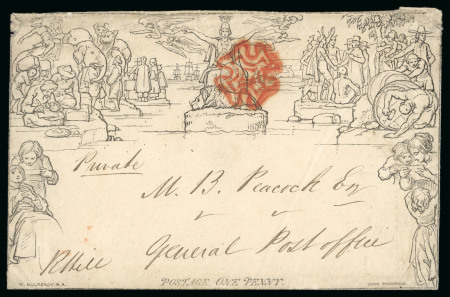 Private
M. B. Peacock Esq
General Post office
R Hill
POSTAGE ONE PENNY.
W. MULREADY. R.A.
JOHN THOMPSON